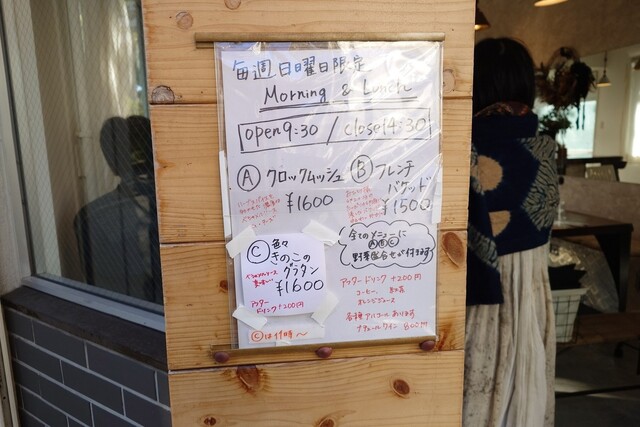 毎週日曜日限定
Morning & Lunch
open 9:30 / close 14:30
Ⓐ クロックムッシュ
¥1600
Ⓑ フレンチ
バゲッド
¥1500
Ⓒ 色々
きのこの
グラタン
¥1600
アフター
ドリンク+200円
全てのメニューに
ⒶⒷⒸ
野菜盛合せが付きます
アフタードリンク +200円
コーヒー、紅茶
オレンジジュース
各種アルコールあります
ナチュールワイン 800円
Ⓒは11時〜